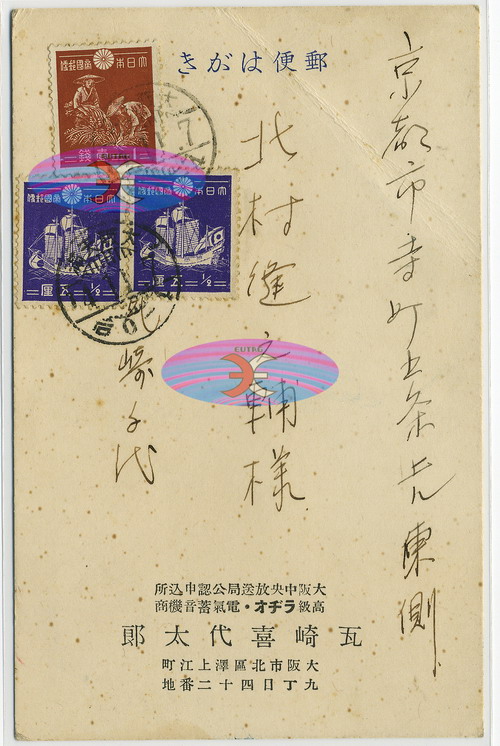 郵便はがき
大日本帝國郵便
壹錢
大日本帝國郵便
五厘 1/2
大日本帝國郵便
五厘 1/2
京都市寺町五条上ル東側
北村縫之輔様
崎千代
大阪中央放送局公認申込所
高級ラヂオ・電氣蓄音機商
瓦崎喜代太郎
大阪市北區澤上江町
九丁目四十二番地